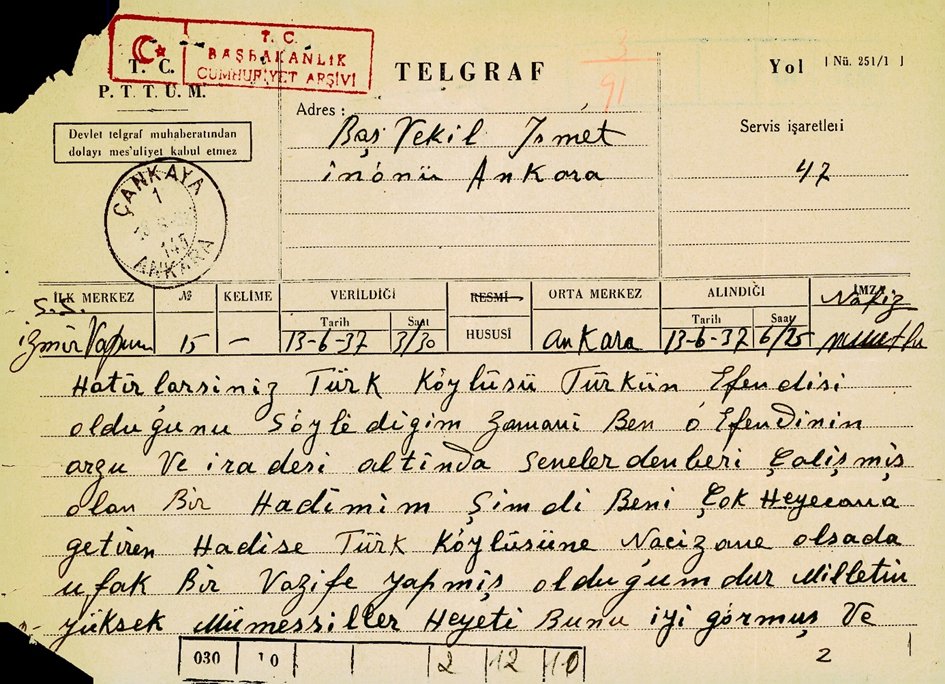 T. C.
BAŞBAKANLIK
CUMHURİYET ARŞİVİ
T. C.
P. T. T. U. M.
Devlet telgraf muhaberatından
dolayı mes'uliyet kabul etmez
ÇANKAYA
1
145
ANKARA
TELGRAF
3
91
Adres :
Baş Vekil İsmet
inönü Ankara
Yol [ Nü. 251/1 ]
Servis işaretleri
47
İLK MERKEZ № KELİME VERİLDİĞİ RESMİ ORTA MERKEZ ALINDIĞI İMZA
Tarih Saat HUSUSİ Tarih Saat
S.S.
izmir Vapuru 15 — 13-6-37 3/30 Ankara 13-6-37 6/25
Hatırlarsiniz Türk Köylüsü Türkün Efendisi
olduğunu Söyledigim Zamani Ben o Efendinin
arzu Ve iradesi altinda Seneler denberi Çalişmiş
olan Bir Hadimim Şimdi Beni Çok Heyecana
getiren Hadise Türk Köylüsüne Nacizane olsada
ufak Bir Vazife yapmiş olduğumdur Milletin
yüksek Mümessiller Heyeti Bunu iyi görmuş Ve
030 10 2 12 10
2